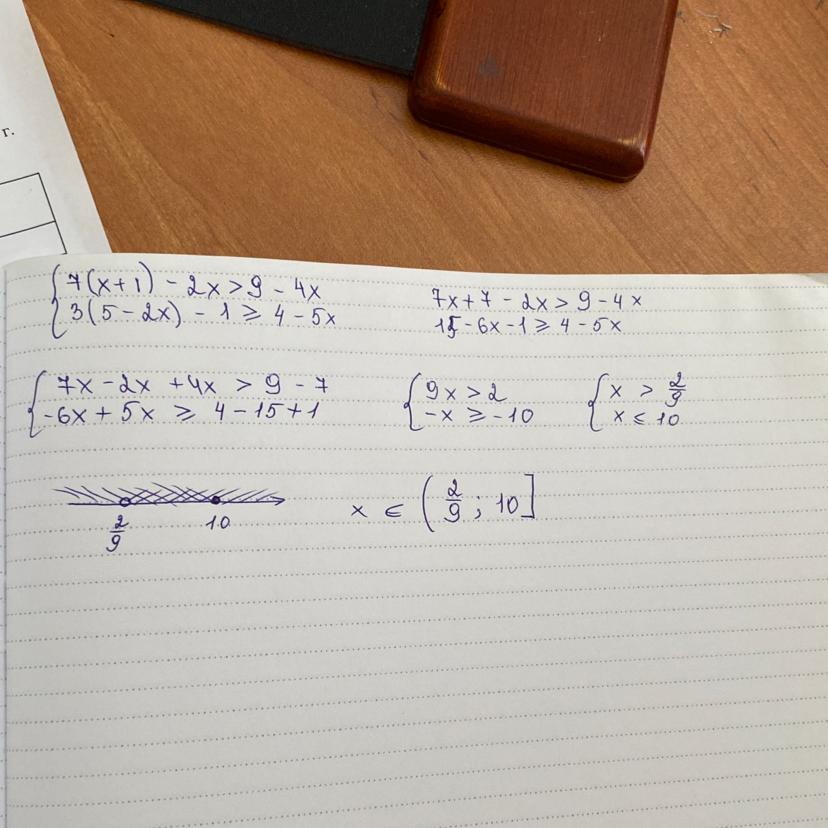 г.
7(x+1) - 2x > 9 - 4x
3(5 - 2x) - 1 ≥ 4 - 5x
7x + 7 - 2x > 9 - 4x
15 - 6x - 1 ≥ 4 - 5x
7x - 2x + 4x > 9 - 7
-6x + 5x ≥ 4 - 15 + 1
9x > 2
-x ≥ -10
x > 2/9
x ≤ 10
2/9 10
x ∈ (2/9 ; 10]